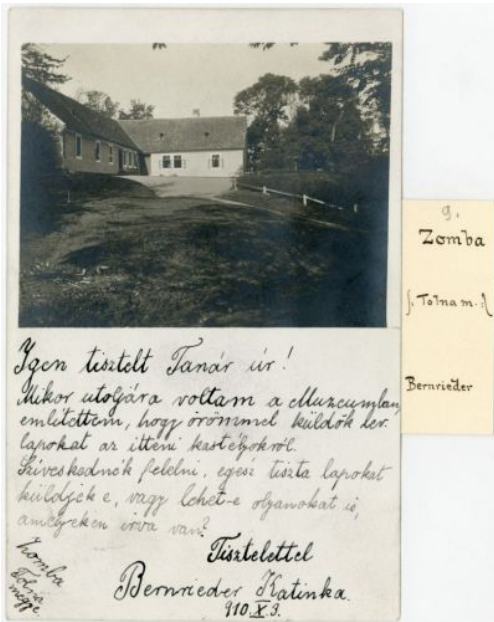 Igen tisztelt Tanár úr!
Mikor utoljára voltam a Muzeumban,
említettem, hogy örömmel küldök lev.
lapokat az itteni kastélyokról.
Sziveskednék felelni, egész tiszta lapokat
küldjek e, vagy lehet-e olyanokat is,
amelyeken irva van?
Tisztelettel
Bernrieder Katinka.
910.X.3.
Zomba
Tolna
megye.
9.
Zomba
/: Tolna m. :/
Bernrieder